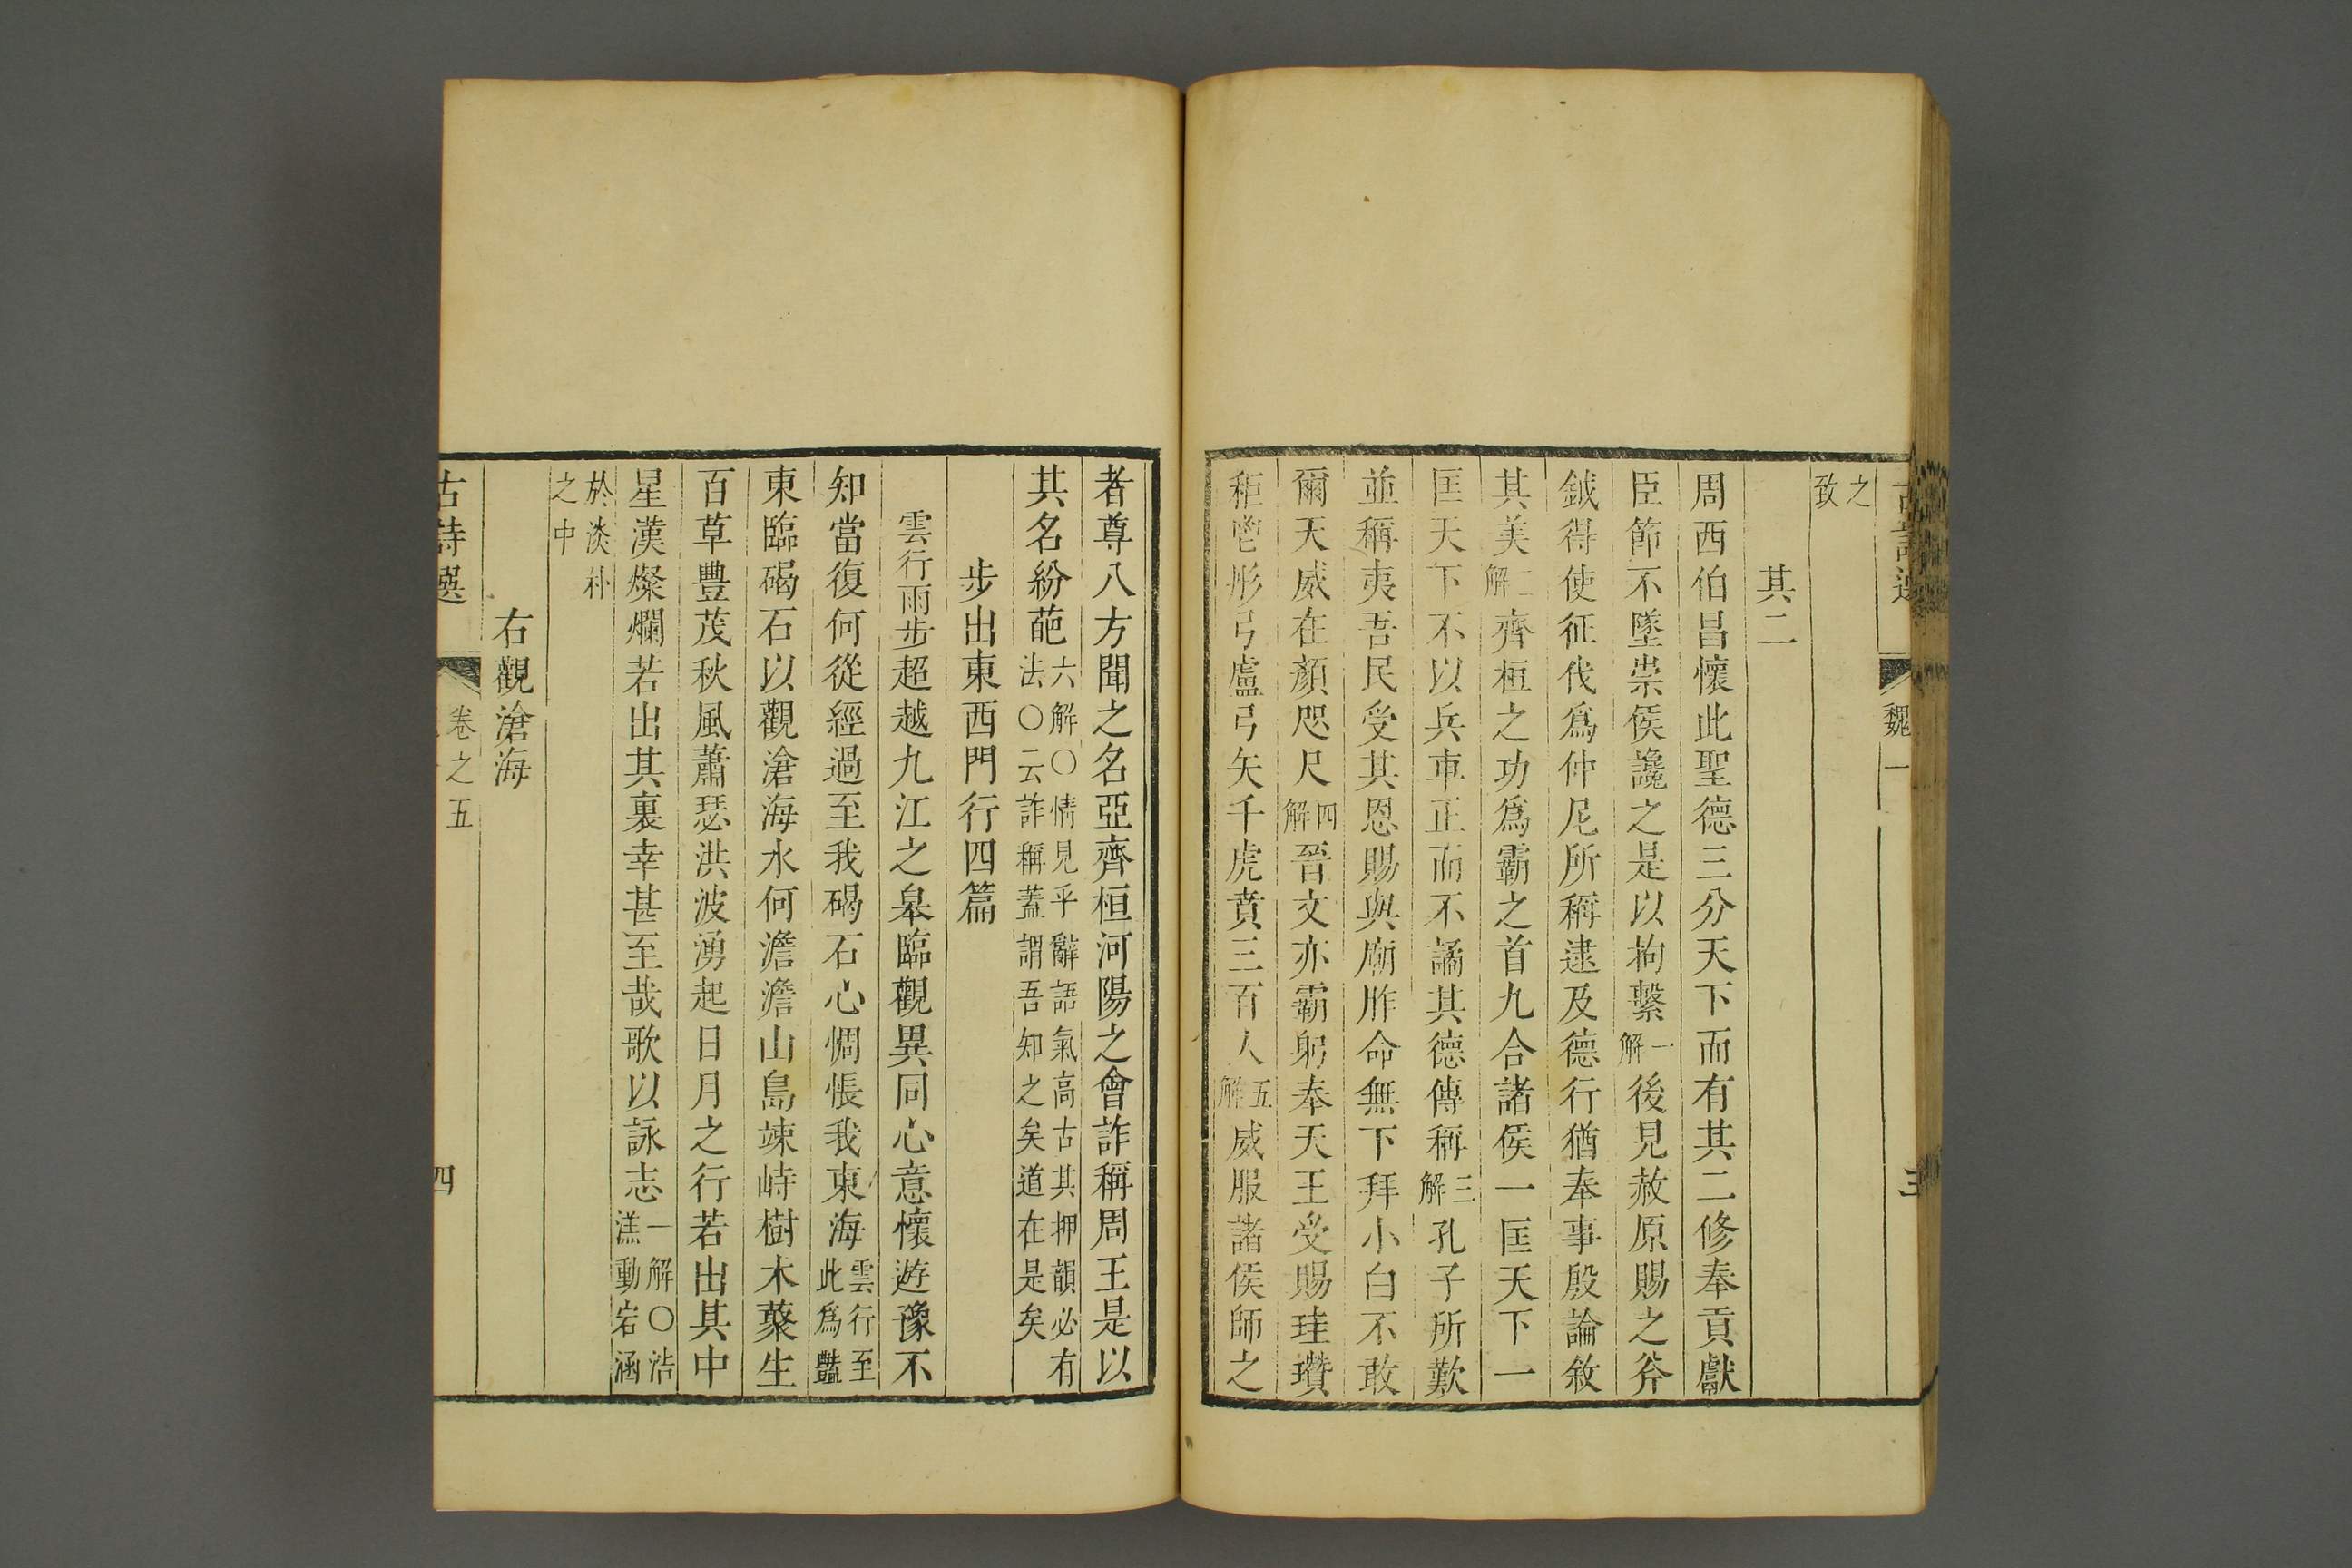 古詩選 魏一 三
之
致
其二
周西伯昌懷此聖德三分天下而有其二修奉貢獻
臣節不墜崇侯讒之是以拘繫一解後見赦原賜之斧
鉞得使征伐爲仲尼所稱逮及德行猶奉事殷論敘
其美二解齊桓之功爲霸之首九合諸侯一匡天下一
匡天下不以兵車正而不譎其德傳稱三解孔子所歎
並稱夷吾民受其恩賜與廟胙命無下拜小白不敢
爾天威在顏咫尺四解晉文亦霸躬奉天王受賜珪瓚
秬鬯彤弓盧弓矢千虎賁三百人五解威服諸侯師之
者尊八方聞之名亞齊桓河陽之會詐稱周王是以
其名紛葩六解〇情見乎辭語氣高古其押韻必有
法〇云詐稱蓋謂吾知之矣道在是矣
步出東西門行四篇
雲行雨步超越九江之皋臨觀異同心意懷遊豫不
知當復何從經過至我碣石心惆悵我東海雲行至
此爲豔
東臨碣石以觀滄海水何澹澹山島竦峙樹木藂生
百草豐茂秋風蕭瑟洪波湧起日月之行若出其中
星漢燦爛若出其裏幸甚至哉歌以詠志一解〇浩
漾動宕涵
於淡朴
之中
右觀滄海
古詩選 卷之五 四